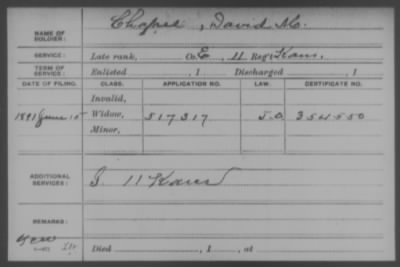 NAME OF SOLDIER: Chapel, David M.
SERVICE: Late rank, Co. E, 11 Reg't Kans.
TERM OF SERVICE: Enlisted , 1 Discharged , 1
DATE OF FILING. CLASS. APPLICATION NO. LAW. CERTIFICATE NO.
Invalid,
1891 June 15 Widow, 517317 354550
Minor,
ADDITIONAL SERVICES: 11 Kans
REMARKS:
Died , 1 , at